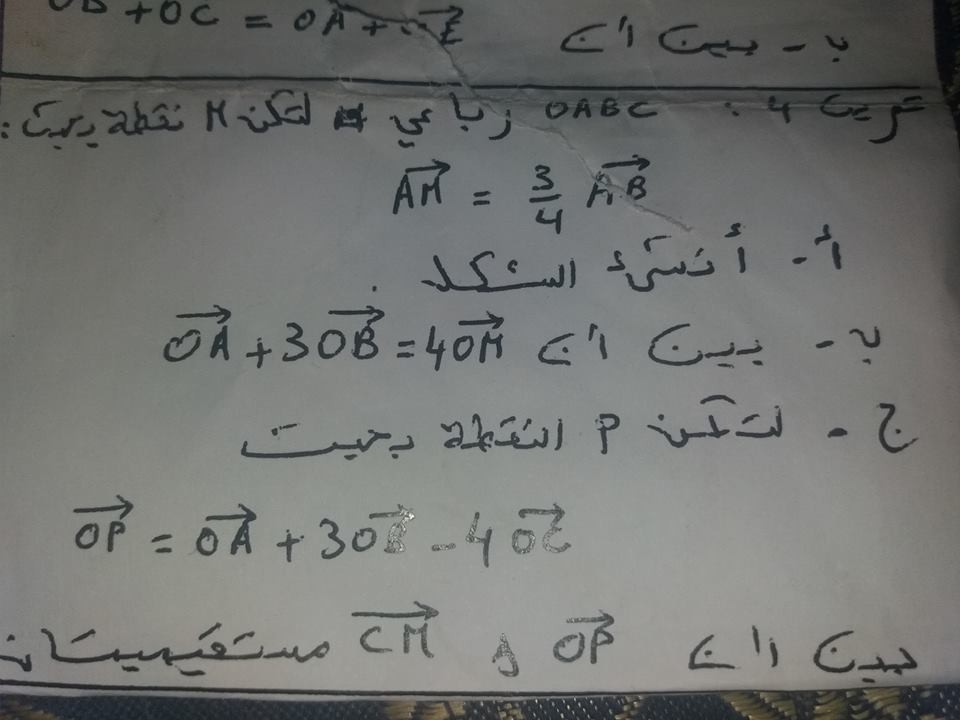 ب - بين أن OB + OC = OA +
تمرين 4 : OABC رباعي لتكن M نقطة بحيث :
AM = 3/4 AB
أ - أنشئ الشكل .
ب - بين أن OA + 3OB = 4OM
ج - لتكن P النقطة بحيث
OP = OA + 3OB - 4OC
بين أن OP و CM مستقيميتان